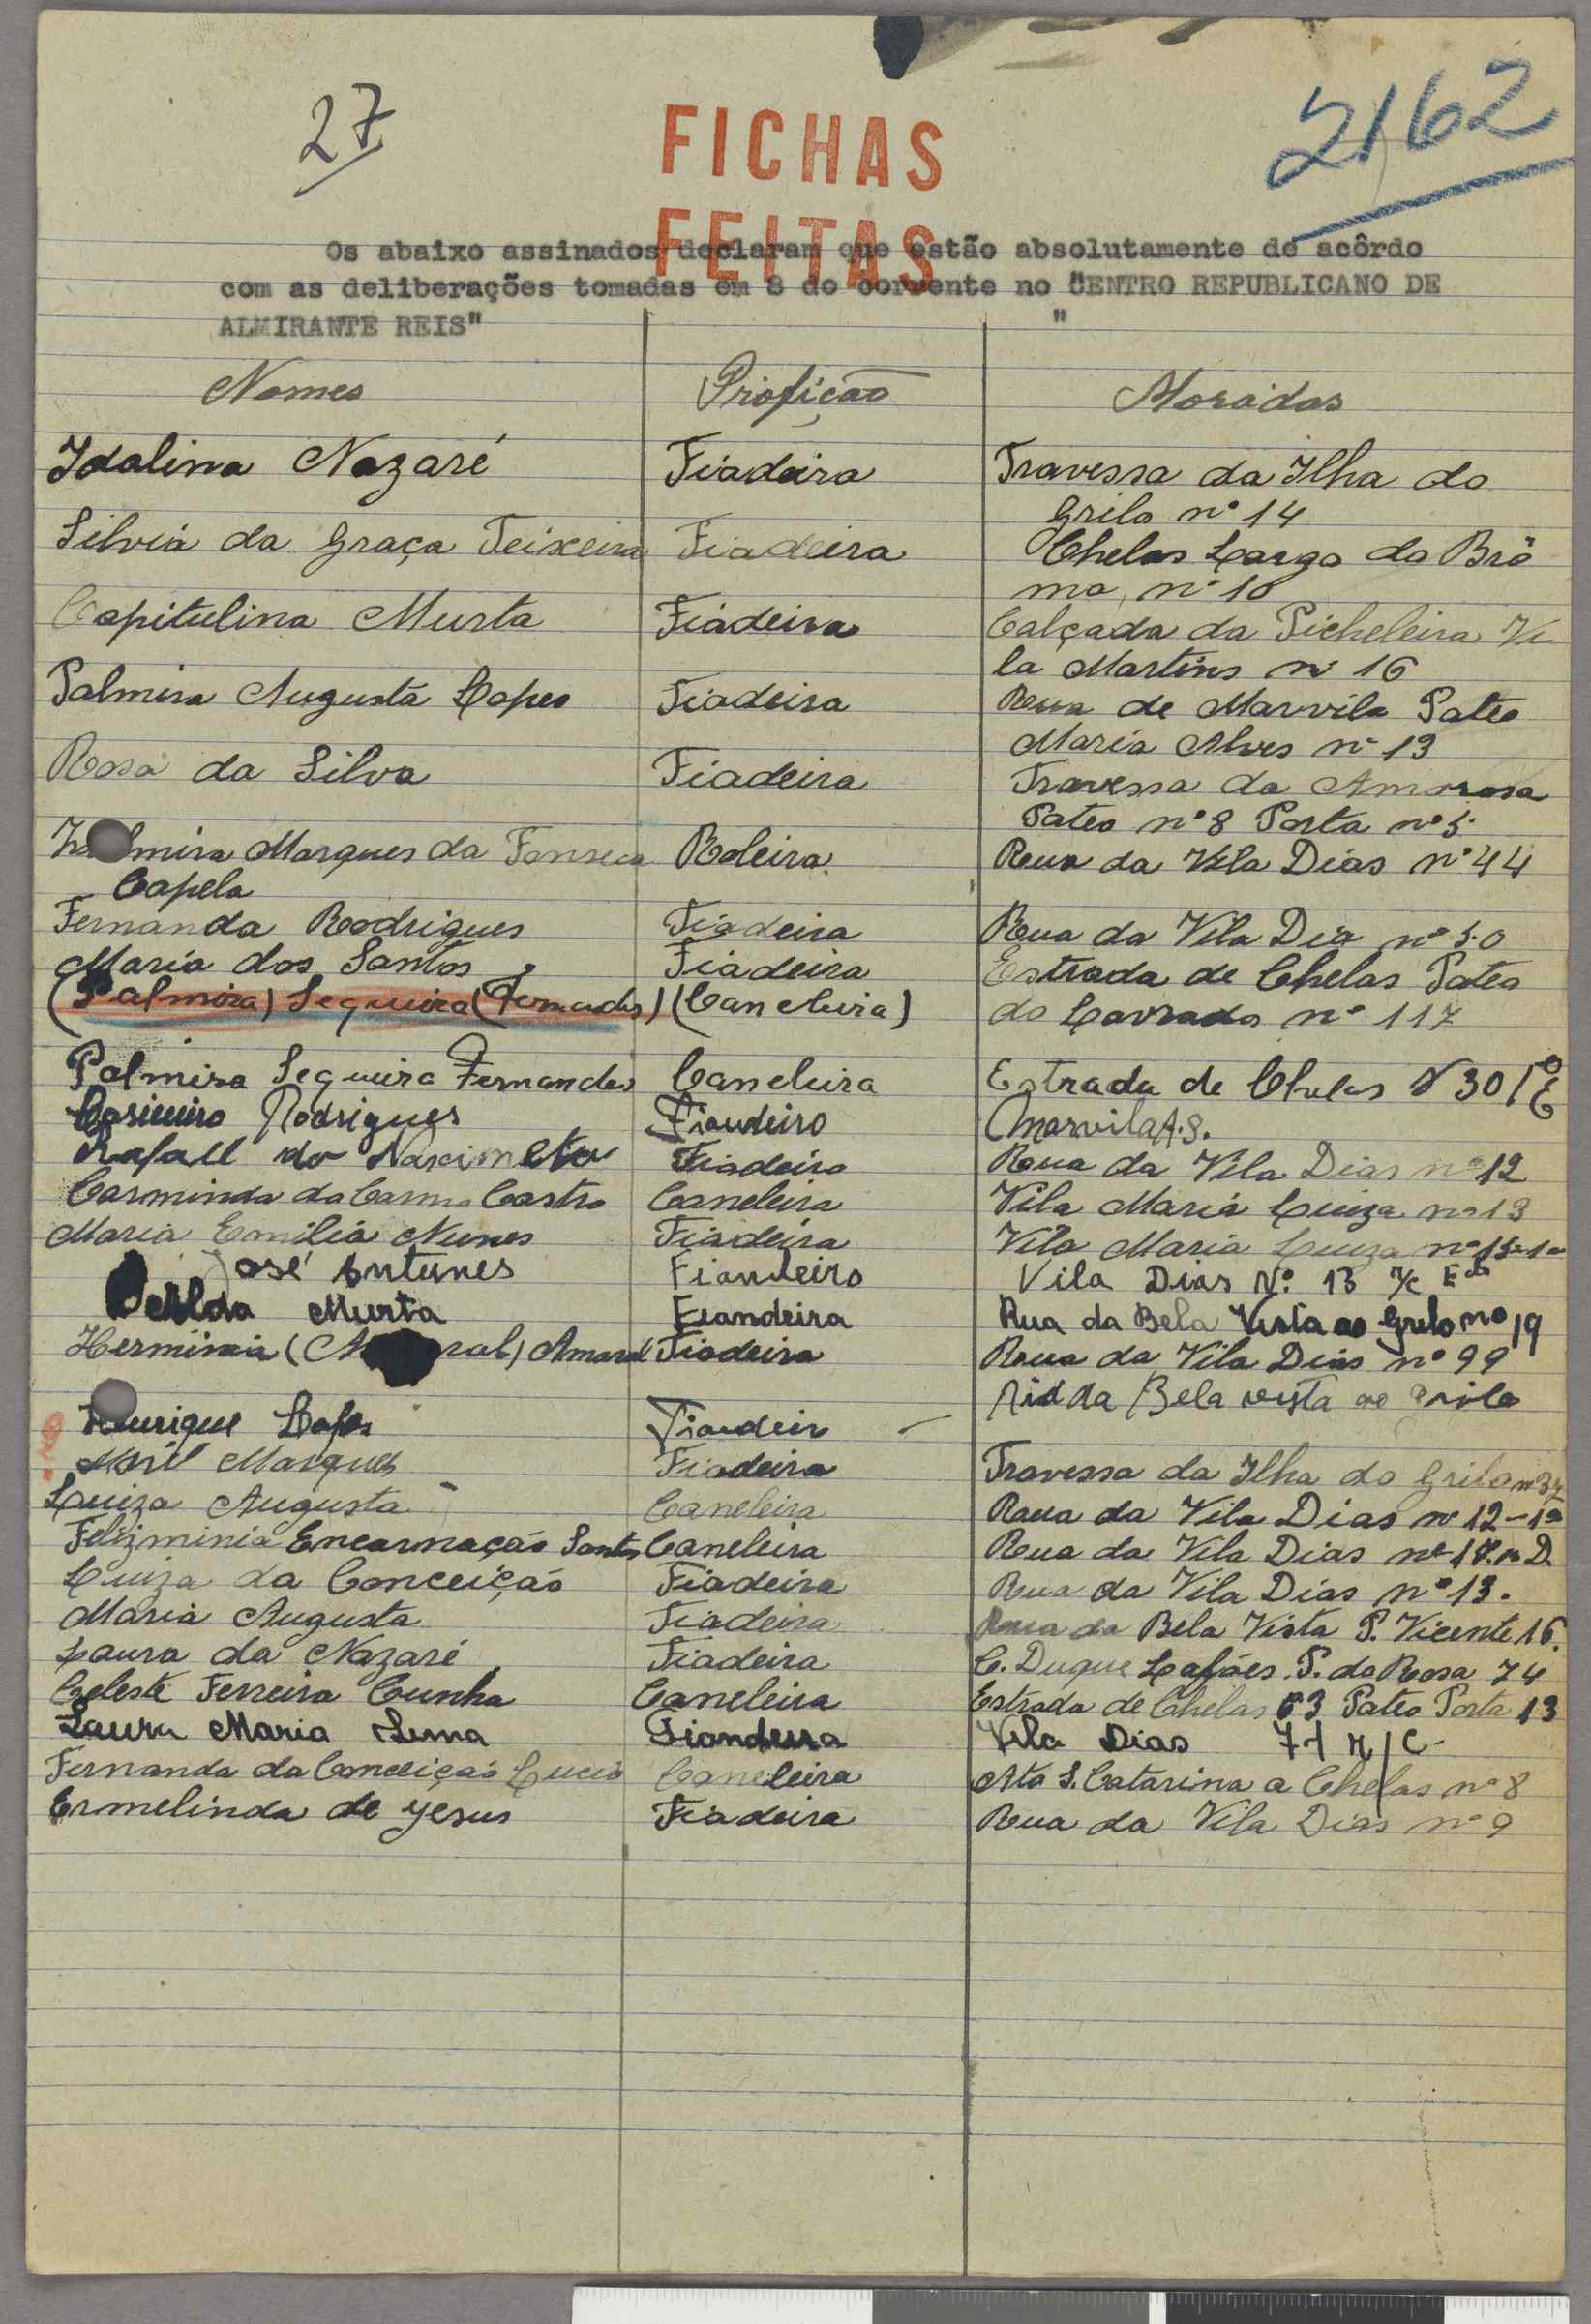 27
FICHAS
2162
FEITAS
Os abaixo assinados declaram que estão absolutamente de acôrdo
com as deliberações tomadas em 8 do corrente no "CENTRO REPUBLICANO DE
ALMIRANTE REIS" "
Nomes Profição Moradas
Idalina Nazaré Fiadeira Travessa da Ilha do
Grilo nº 14
Silvia da Graça Teixeira Fiadeira Chelas Largo do Brô
ma nº 10
Capitulina Murta Fiadeira Calçada da Picheleira Vi
la Martins nº 16
Palmira Augusta Lopes Fiadeira Rua de Marvila Pateo
Maria Alves nº 13
Rosa da Silva Fiadeira Travessa da Amorosa
Pateo nº 8 Porta nº 5
mira Marques da Fonseca Roleira Rua da Vila Dias nº 44
Capela
Fernanda Rodrigues Fiadeira Rua da Vila Dia nº 50
Maria dos Santos Fiadeira Estrada de Chelas Pateo
(Palmira) Sequeira (Fernandes) (Caneleira) do Lavrado nº 117
Palmira Sequeira Fernandes Caneleira Estrada de Chelas Nº 30 1º E
Casimiro Rodrigues Fiandeiro Marvila A.S.
Rafael do Nascimeto Fiadeiro Rua da Vila Dias nº 12
Carminda do Carmo Castro Caneleira Vila Maria Luiza nº 13
Maria Emilia Nunes Fiadeira Vila Maria Luiza nº 15-1º
José Antunes Fiandeiro Vila Dias Nº 13 r/c Edo
Alda Murta Fiandeira Rua da Bela Vista ao Grilo nº 19
Herminia (A ral) Amaral Fiadeira Rua da Vila Dias nº 99
Henrique Lopes Fiandeir da Bela vista ao Grilo
Marques Fiadeira Travessa da Ilha do Grilo nº 37
Luiza Augusta Caneleira Rua da Vila Dias nº 12-1º
Felizminia Encarnação Santos Caneleira Rua da Vila Dias nº 17. D
Luiza da Conceição Fiadeira Rua da Vila Dias nº 13.
Maria Augusta Fiadeira Rua da Bela Vista P. Vicente 16.
Laura da Nazaré Fiadeira C. Duque Lafões P. da Rosa 74
Celeste Ferreira Cunha Caneleira Estrada de Chelas 63 Pateo Porta 13
Laura Maria Lima Fiandeira Vila Dias 71 R/C-
Fernanda da Conceição Lucio Caneleira Ato S. Catarina a Chelas nº 8
Ermelinda de Jesus Fiadeira Rua da Vila Dias nº 9